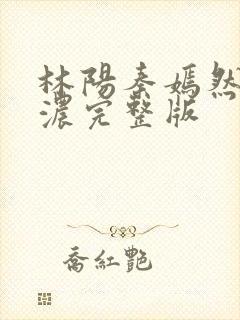 林陽秦嫣然
濃完整版
喬紅艷